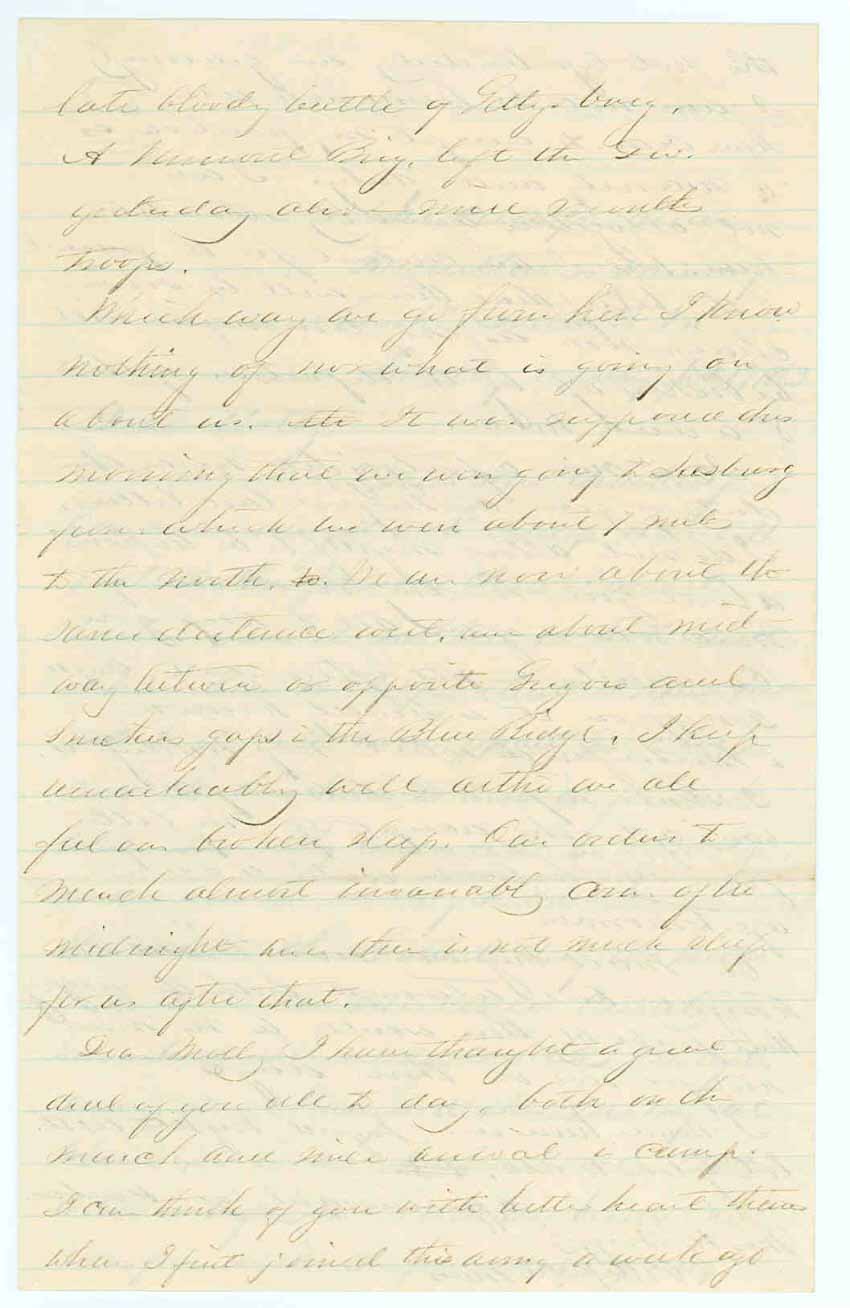 late bloody battle of Gettysburg.
A Vermont Brig. left the Div.
yesterday also nine months
troops.
Which way we go from here I know
nothing of nor what is going on
about us. It was supposed this
morning that we were going to Leesburg
from which we were about 7 miles
to the north. We are now about the
same distance west, are about mid-
way between or opposite and
gaps in the Blue Ridge. I keep
remarkably well altho we all
feel our broken sleep. Our orders to
march almost invariably come after
midnight and there is not much sleep
for us after that.
Dear Molly I have thought a great
deal of you all to day, both on the
march and since arrival in camp.
I can think of you with better heart than
when I first joined this army a week ago